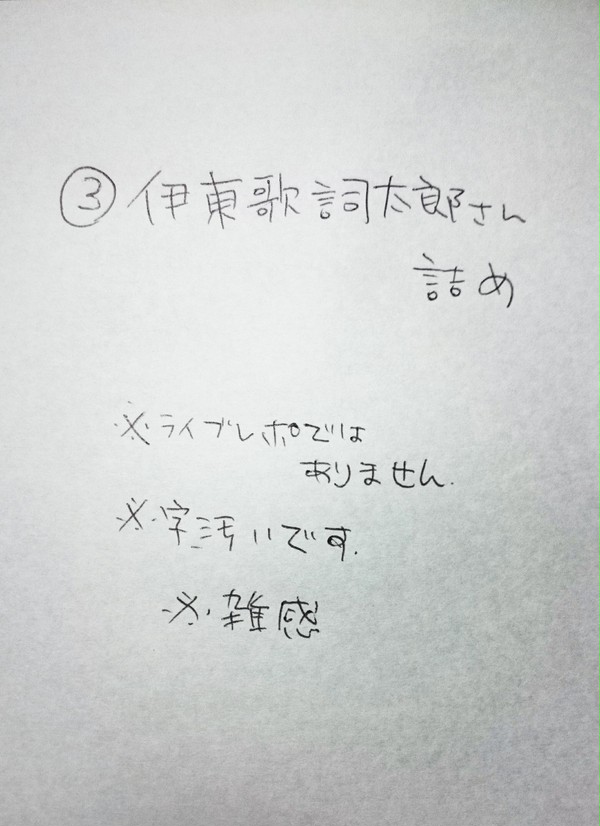 ③伊東歌詞太郎さん
詰め
※ライブレポでは
ありません.
※字汚いです.
※雑感